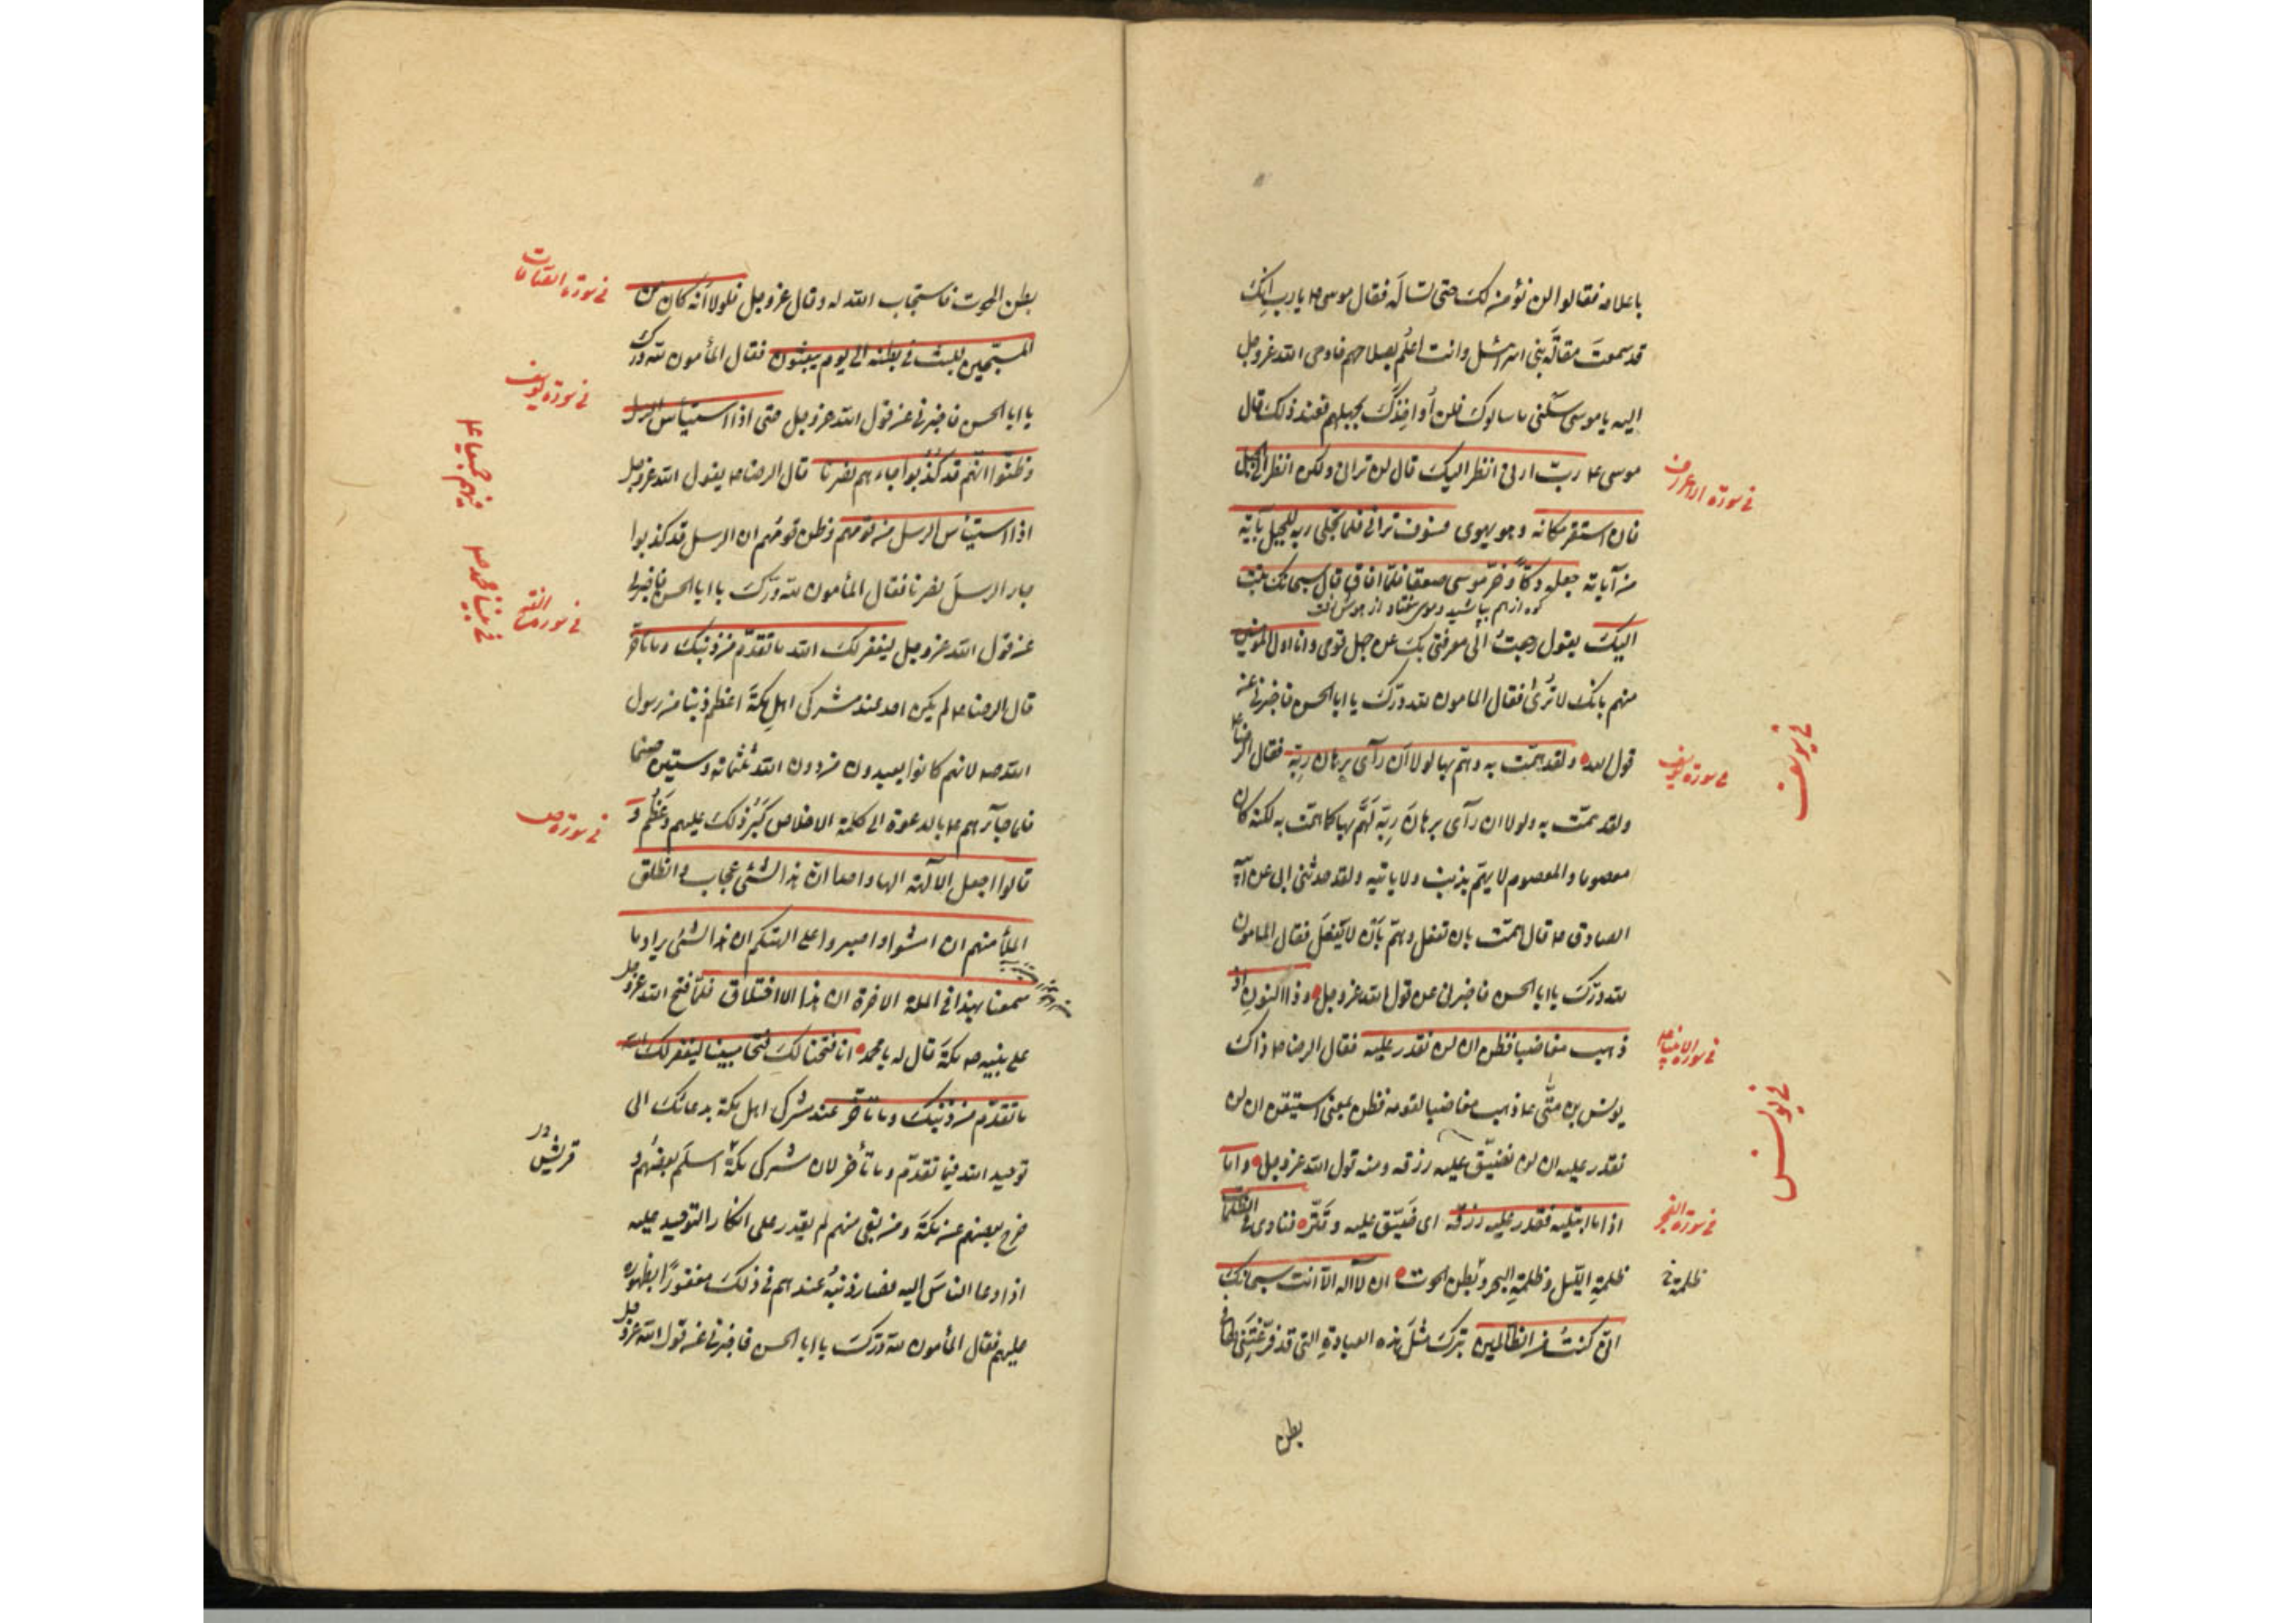 باعلامه فقالوا لن نؤمن لك حتى تسأله فقال موسى ۴ يا رب انك
قد سمعت مقالة بنى اسرائيل وانت اعلم بصلاحهم فاوحى الله عزوجل
اليه يا موسى سلنى ما سالوك فلن أُواخِذَك بجهلهم فعند ذلك قال
موسى ۴ ربّ ارنى انظر اليك قال لن ترانى ولكن انظر الى الجبل
فى سورة الاعراف
فان استقر مكانه وهو يهوى فسوف ترانى فلما تجلى ربه للجبل بآية
من آياته جعله دكّاً وخرّ موسى صعقا فلمّا افاق قال سبحانك تبت
كوه از هم بپاشيد وموسى بيفتاد از هوش رفت
اليك يقول رجعتُ الى معرفتى بك عن جهل قومى وانا اول المؤمنين
منهم بانك لا تُرى فقال المامون لله درّك يا ابا الحسن فاخبرنى عن
قول الله ولقد همّت به وهمّ بها لولا أن رآى برهان ربّه فقال الرضا ۴
فى سورة يوسف
فى يوسف
ولقد همّت به ولولا ان رآى برهان ربّه لَهَمَّ بها كما همّت به لكنه كان
معصوما والمعصوم لا يهمّ بذنب ولا ياتيه ولقد حدثنى ابى عن ابيه
الصادق ۴ قال همّت بان تفعل وهمّ بأن لا يفعل فقال المامون
لله درّك يا ابا الحسن فاخبرنى عن قول الله عزوجل وذا النون اذ
ذهب مغاضبا فظن ان لن نقدر عليه فقال الرضا ۴ ذاك
فى سورة الانبياء
يونس بن متّى ۴ ذهب مغاضبا لقومه فظن بمعنى استيقن ان لن
فى يونس
نقدر عليه ان لن نضيّق عليه رزقه ومنه قول الله عزوجل واما
اذا ما ابتليه فقدر عليه رزقه اى ضَيّق عليه وقتّر فنادى فى الظلمات
فى سورة الفجر
ظلمةِ الليل وظلمةِ البحر وبطن الحوت ان لا آله الّا انت سبحانك
ظلمة فى
انّى كنتُ من الظالمين بتركى مثلَ هذه العبادةِ التى قد فرّغتَنى لها فى
بطن
بطن الحوت فاستجاب الله له وقال عزوجل فلولا أنّه كان من
فى سورة الصافات
المسبّحين للبث فى بطنه الى يوم يبعثون فقال المأمون لله درّك
يا ابا الحسن فاخبرنى عن قول الله عزوجل حتى اذا استيأس الرسل
فى سورة يوسف
وظنّوا انّهم قد كُذِبُوا جاءهم نصرنا قال الرضا ۴ يقول الله عزوجل
اذا استيأس الرسل من قومهم وظن قومُهم ان الرسل قد كذبوا
جاء الرسلَ نصرنا فقال المأمون لله درّك يا ابا الحسن فاخبرنى
فى سورة الفتح
فى نبينا محمد ص
عن قول الله عزوجل ليغفر لك الله ما تقدّم من ذنبك وما تأخر
قال الرضا ۴ لم يكن احد عند مشركى اهل مكّةَ اعظم ذنبا من رسول
الله ص لانهم كانوا يعبدون من دون الله ثلثمائه وستين صنما
فلما جآءهم ۴ بالدعوة الى كلمة الاخلاص كَبُرَ ذلك عليهم وعَظُم و
فى سورة ص
قالوا اجعل الآلهة الها واحدا انّ هذا لشئ عجاب وانطلق
الملأ منهم ان امشوا واصبروا على الهتكم ان هذا لشئ يراد ما
سمعنا بهذا فى الملة الاخرة ان هذا الا اختلاق فلمّا فتح الله عزوجل
على نبيه ص مكّةَ قال له يا محمد انا فتحنا لك فتحا مبينا ليغفر لك الله
ما تقدّم من ذنبك وما تأخّر عند مشركى اهل مكّة بدعائك الى
توحيد الله فيما تقدّم وما تأخر لان مشركى مكّة اسلَم بعضهُم و
خرج بعضهم عن مكّةَ ومن بقى منهم لم يقدر على انكار التوحيد عليه
اذا دعا الناسَ اليه فصار ذنبُه عندهم فى ذلك مغفورًا بظهوره
عليهم فقال المأمون لله درّك يا ابا الحسن فاخبرنى عن قول الله عزوجل